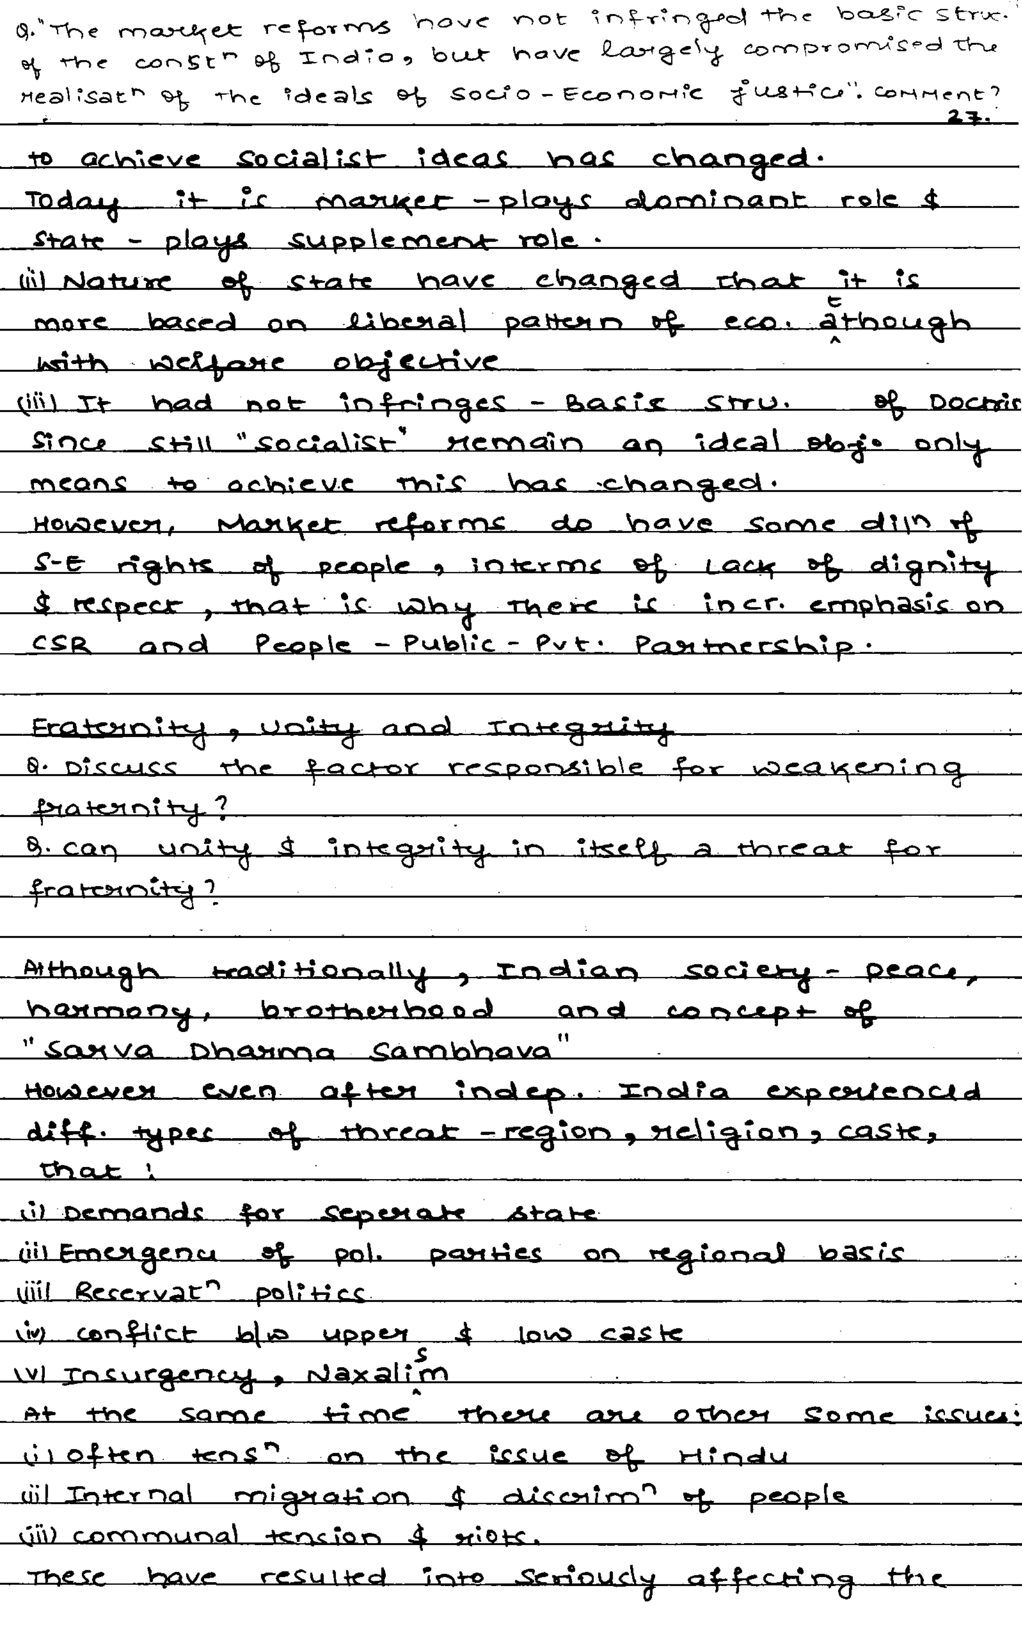 Q. "The market reforms have not infringed the basic struc.
of the constn of India, but have largely compromised the
realisatn of the ideals of socio-Economic justice". comment?
27.
to achieve socialist ideas has changed.
Today it is market - plays dominant role &
state - plays supplement role.
(ii) Nature of state have changed that it is
more based on liberal pattern of eco. although
with welfare objective
(iii) It had not infringes - Basic stru. of Doctri
since still "socialist" remain an ideal obj. only
means to achieve this has changed.
However, Market reforms do have some diln of
S-E rights of people, interms of Lack of dignity
& respect, that is why there is incr. emphasis on
CSR and People - Public - Pvt. Partnership.
Fraternity, unity and Integrity
Q. Discuss the factor responsible for weakening
fraternity?
Q. can unity & integrity in itself a threat for
fraternity?
Although traditionally, Indian society - peace,
harmony, brotherhood and concept of
"Sarva Dharma Sambhava"
However even after indep. India experienced
diff. types of threat - region, religion, caste,
that :
(i) Demands for seperate state
(ii) Emergence of pol. parties on regional basis
(iii) Reservatn politics
(iv) conflict b/w upper & low caste
(v) Insurgency, Naxalism
At the same time there are other some issues:
(i) often tensn on the issue of Hindu
(ii) Internal migration & discrimn of people
(iii) communal tension & riots.
These have resulted into seriously affecting the